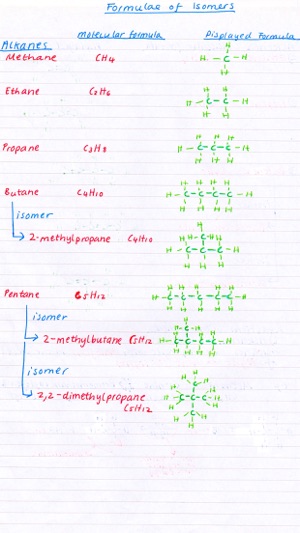 Formulae of Isomers
molecular formula Displayed Formula
Alkanes
Methane CH4
Ethane C2H6
Propane C3H8
Butane C4H10
isomer
2-methylpropane C4H10
Pentane C5H12
isomer
2-methylbutane C5H12
isomer
2,2-dimethylpropane
C5H12